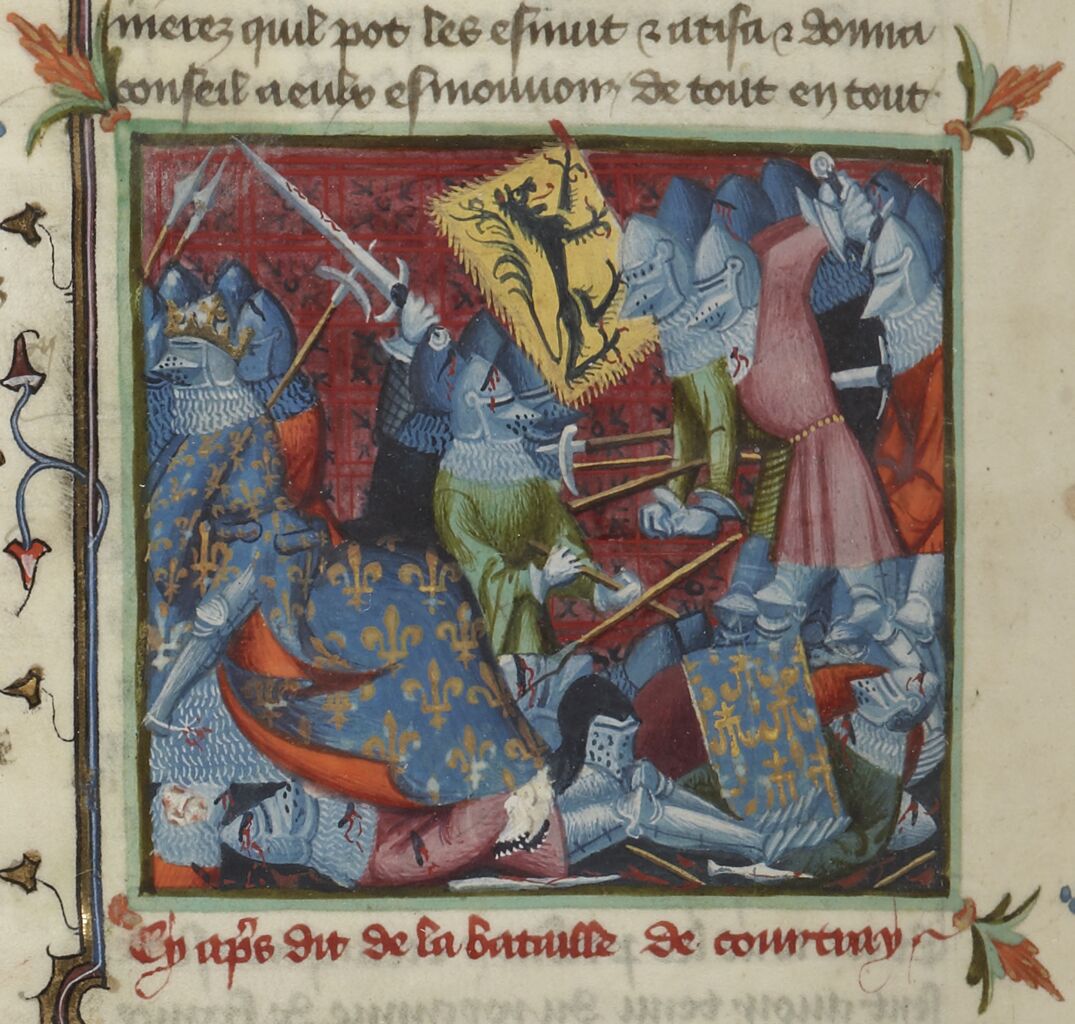 merez quil pot les esmut ⁊ atisa ⁊ donna
conseil a eulx esmouvoir de tout en tout
Cy aps dit de la bataille de courtray